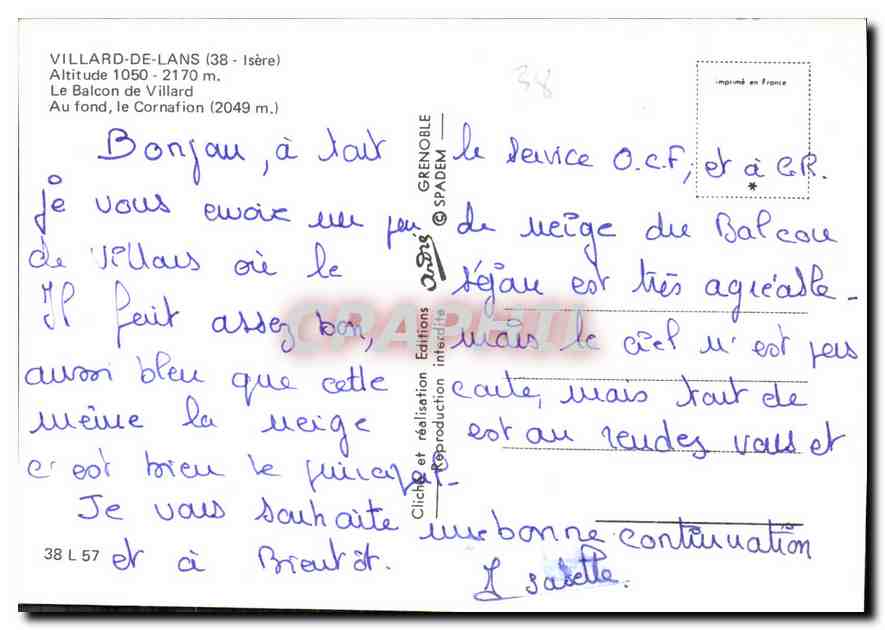 VILLARD-DE-LANS (38 - Isère)
Altitude 1050 - 2170 m.
Le Balcon de Villard
Au fond, le Cornafion (2049 m.)
38
imprimé en France
*
Bonjour, à tout le service O.C.F, et à G.R.
je vous envoie un peu de neige du Balcon
de Villars où le séjour est très agréable.
Il fait assez bon, mais le ciel n'est pas
aussi bleu que cette carte, mais tout de
même la neige est au rendez vous et
c'est bien le principal.
Je vous souhaite une bonne continuation
et à Bientôt. Isabelle.
38 L 57
Cliché et réalisation Editions André GRENOBLE
Reproduction interdite © SPADEM
CPAPHIL